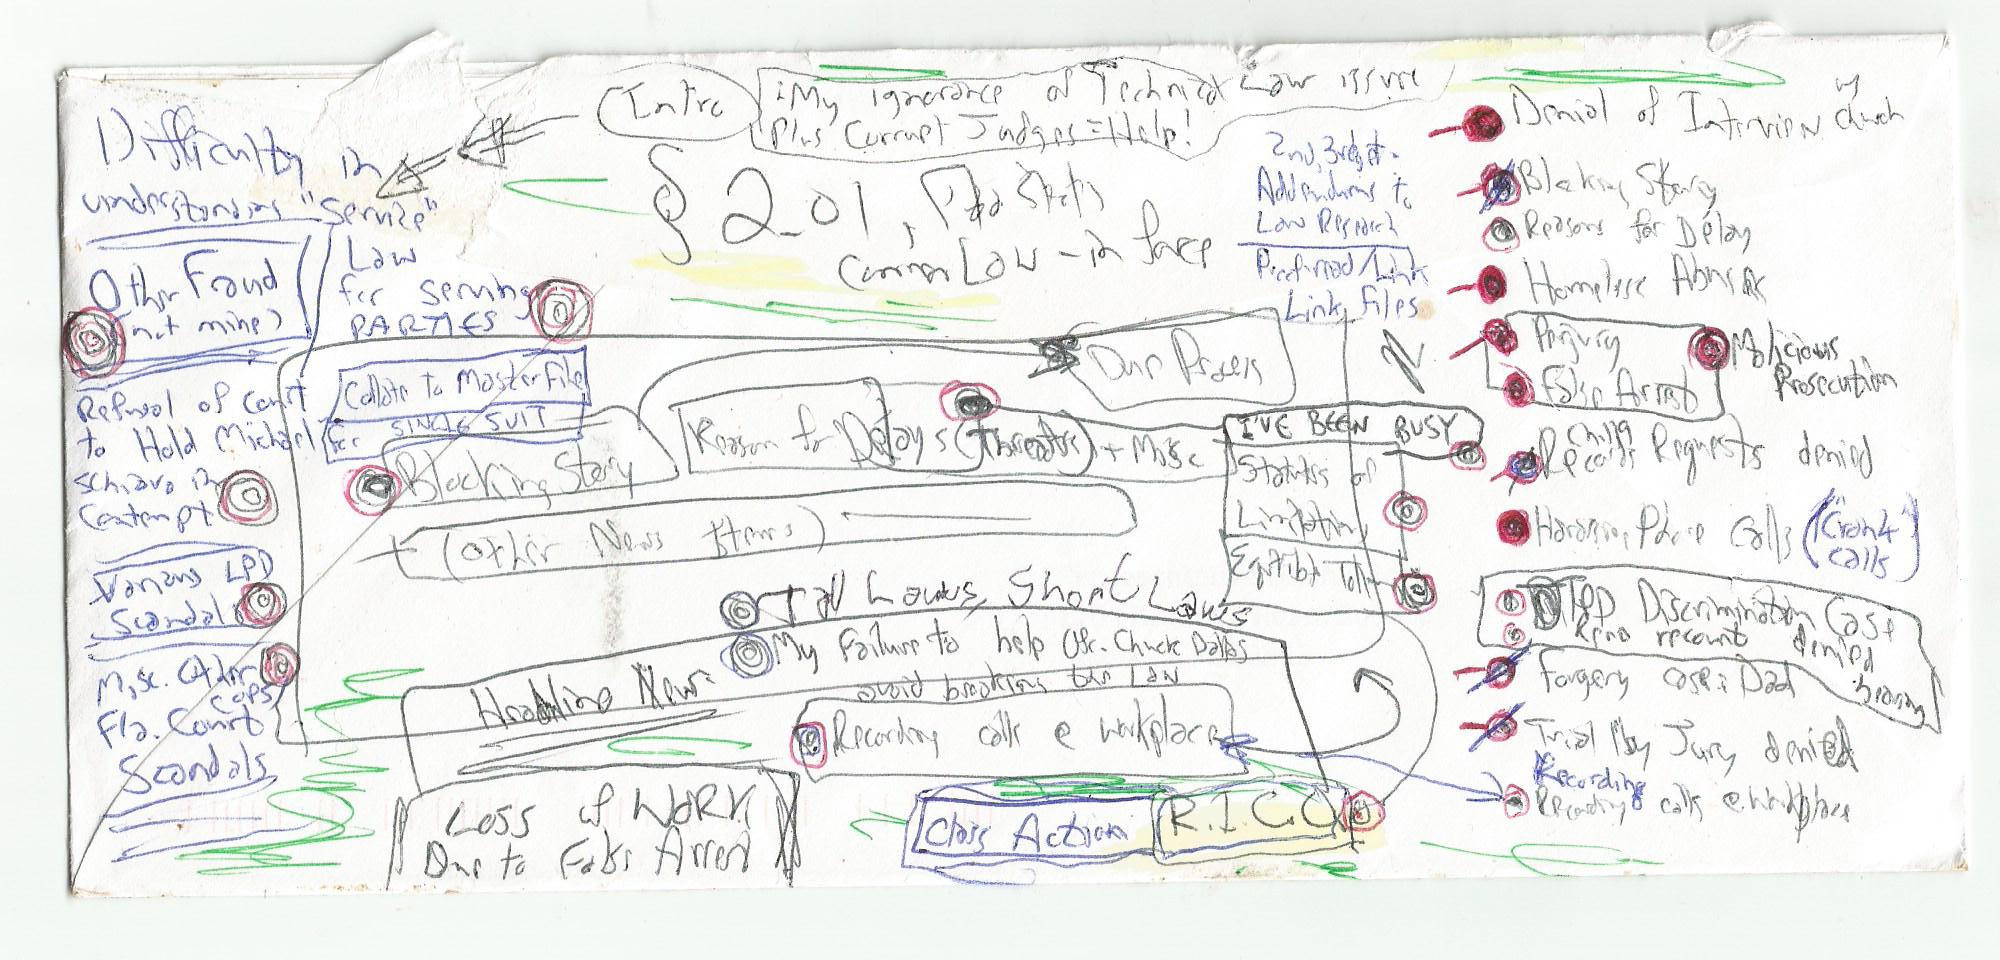 Intro
:My ignorance of Technical Law issue
Plus Corrupt Judges = Help!
§ 2.01, Fla Stats
Common Law - in force
Difficulty in
understanding "service"
Law
for serving
PARTIES
Other Fraud
(not mine)
Refusal of Court
to Hold Michael
schiavo in
Contempt
Various LPD
Scandals
Misc. Other
Cops
Fla. Court
Scandals
2nd, 3rd, et.
Addendums to
Law Research
Link
Link, Files
Collate to Master File
for SINGLE SUIT
Due Process
Reason for Delays (Threats) + Misc
Blocking Story
+ (Other News Items)
I'VE BEEN BUSY
Statutes of
Limitations
Tall Laws, Short Laws
My Failure to help Ofc. Chuck Dallas
avoid breaking the Law
Headline News
Recording calls @ workplace
Loss of WORK,
Due to False Arrest
Class Action
R.I.C.O.
N
Denial of Interview church
Blocking Story
Reasons for Delay
Homeless Abuse
Perjury
False Arrest
Malicious
Prosecution
Records Requests denied
Harassing Phone Calls ("Cron4"
calls)
PD Discrimination Case
Reno recount denied
hearing
Forgery case: Dad
Trial by Jury denied
Recording
Recording calls @ workplace